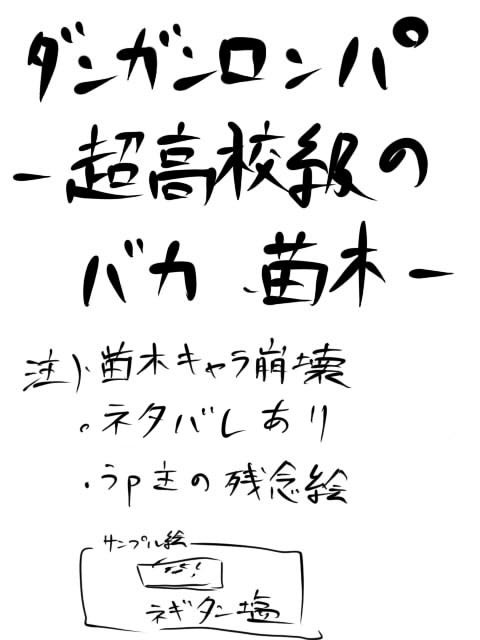 ダンガンロンパ
-超高校級の
バカ 苗木-
注)・苗木キャラ崩壊
。ネタバレあり
・うp主の残念絵
サンプル絵
な!
ネギタン塩